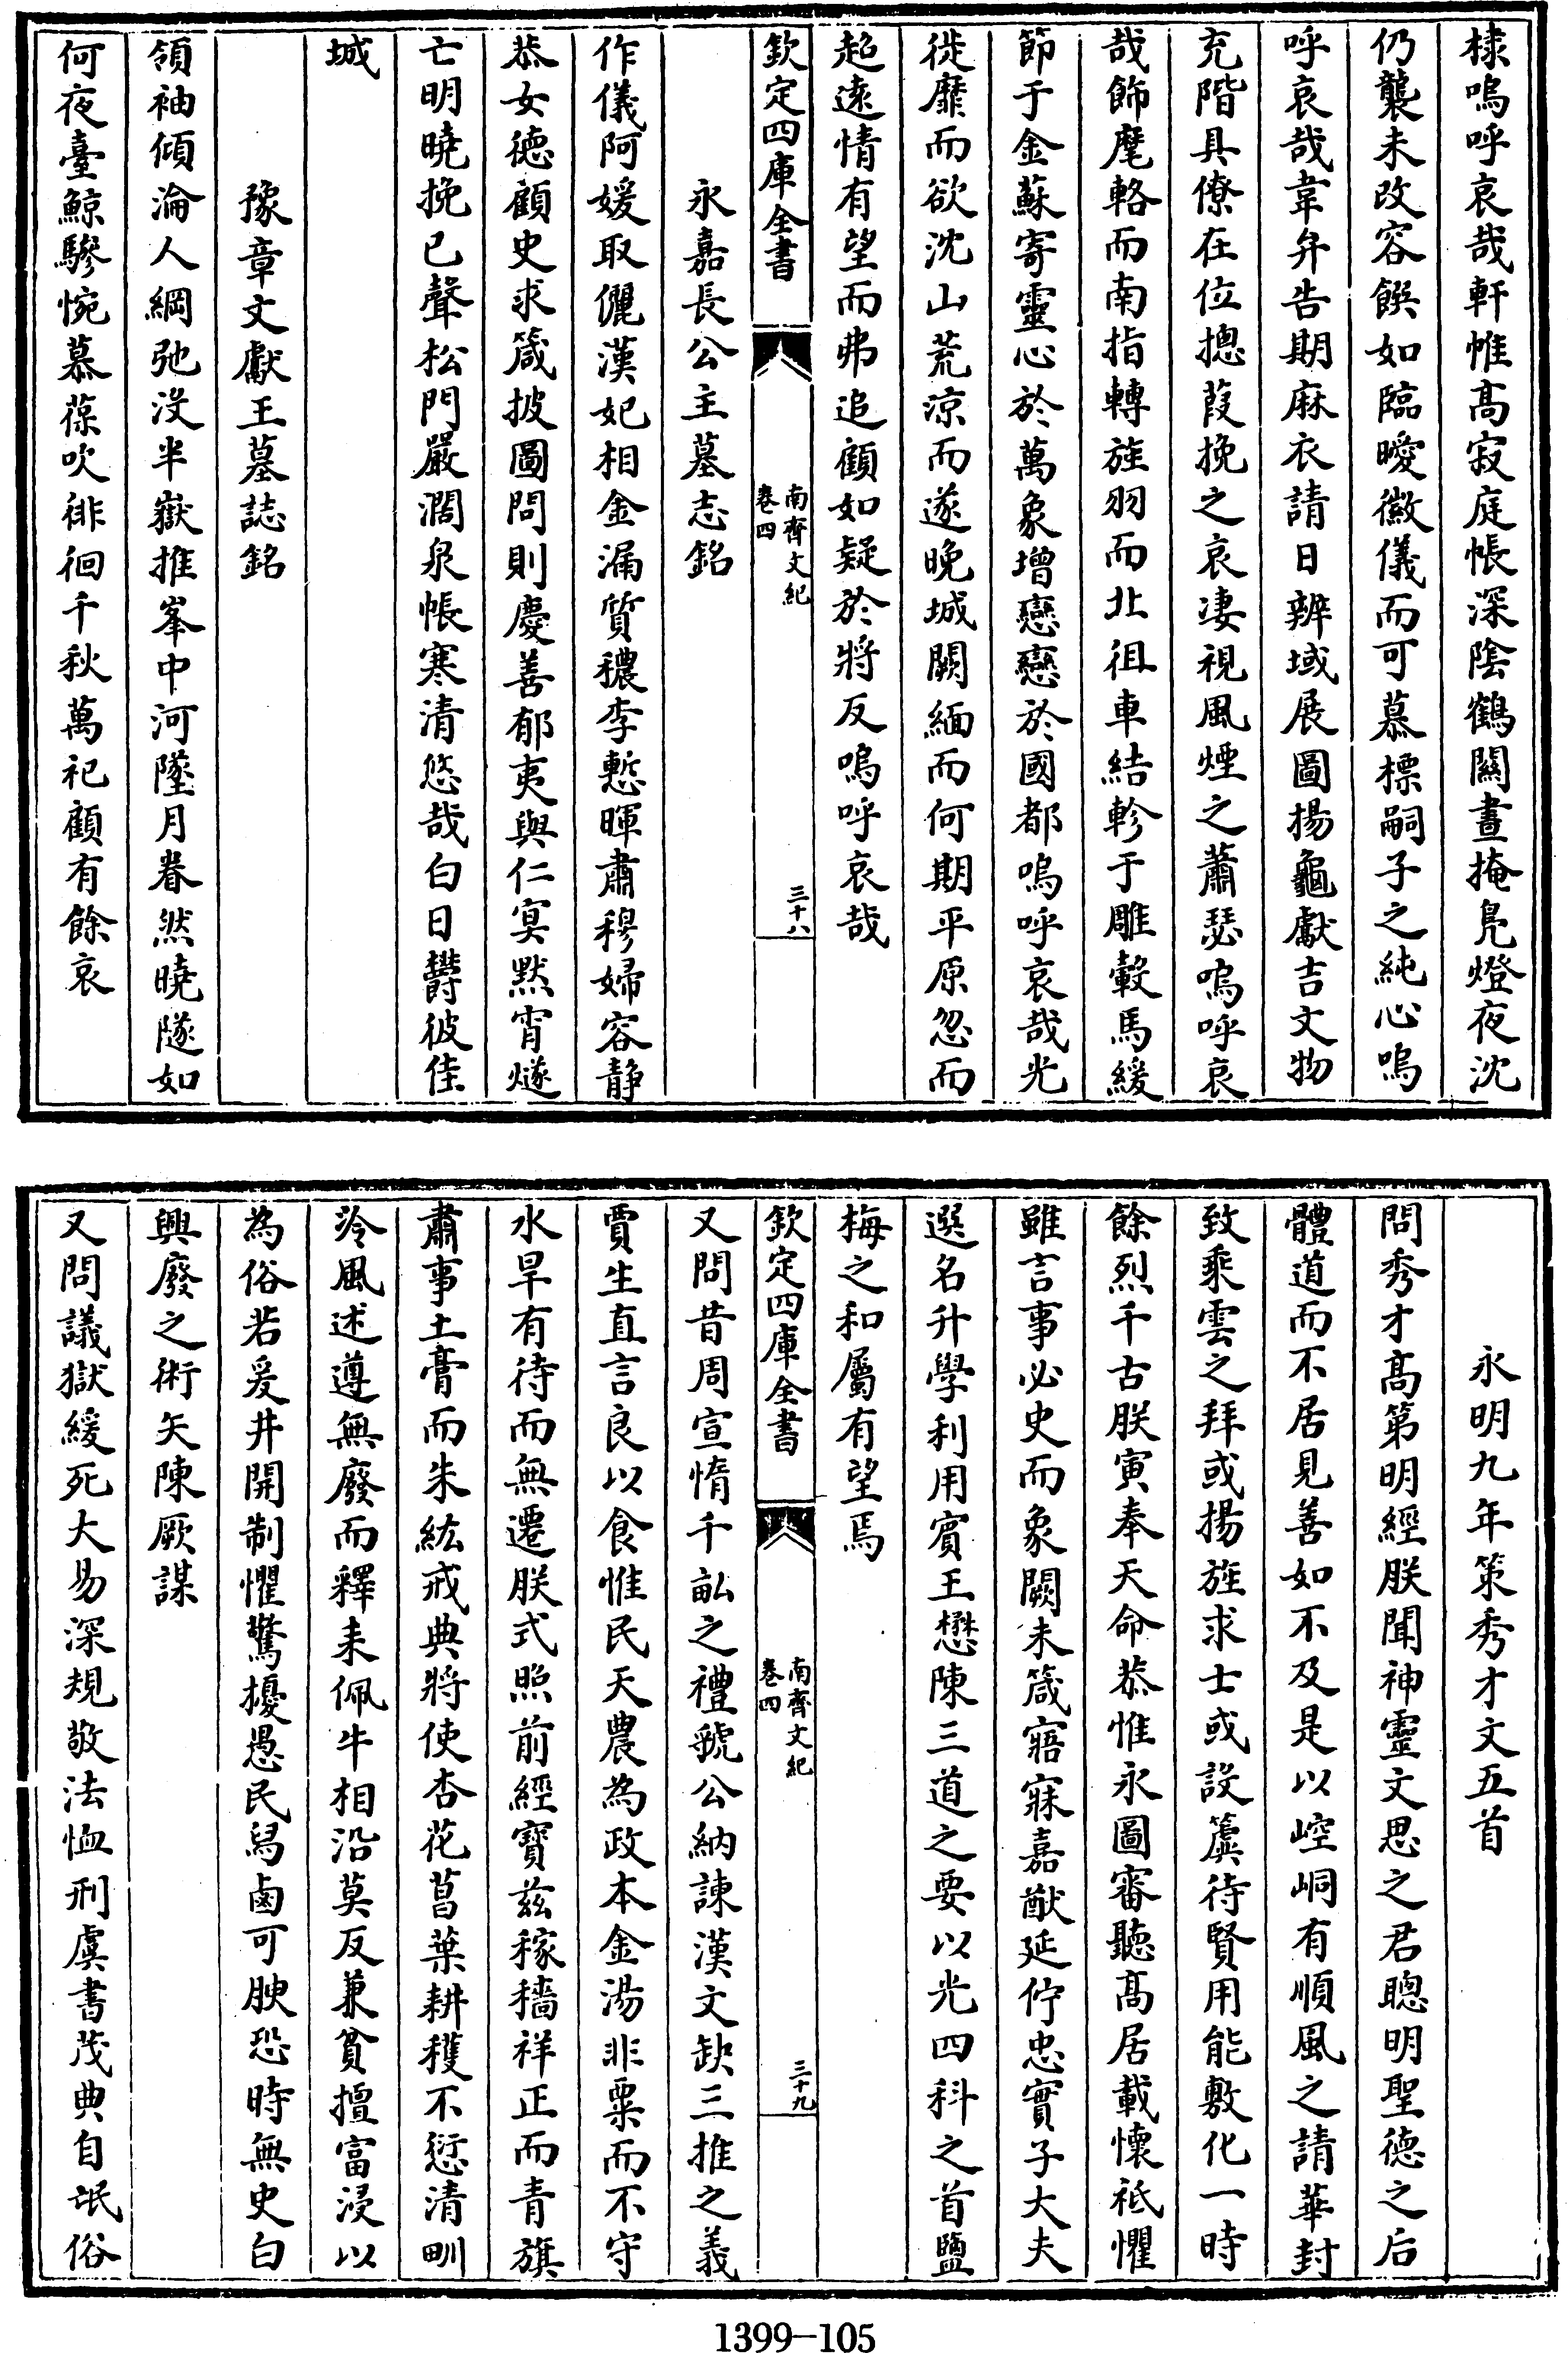 棣嗚呼哀哉軒帷高寂庭帳深陰鶴關晝掩鳧燈夜沈
仍襲未改容饌如臨曖徽儀而可慕標嗣子之純心嗚
呼哀哉韋弁告期麻衣請日辨域展圖揚龜獻吉文物
充階具僚在位摠葭挽之哀凄視風煙之蕭瑟嗚呼哀
哉飾麾輅而南指轉旌羽而北徂車結軫于雕轂馬緩
節于金蘇寄靈心於萬象增戀戀於國都嗚呼哀哉光
徙靡而欲沈山荒涼而遂晚城闕緬而何期平原忽而
超遠情有望而弗追顧如疑於將反嗚呼哀哉
欽定四庫全書 南齊文紀 卷四 三十八
永嘉長公主墓志銘
作儀阿媛取儷漢妃相金漏質穠李慙暉肅穆婦容静
恭女德顧史求箴披圖問則慶善郁夷與仁寞黙宵燧
亡明曉挽已聲松門嚴濶泉帳寒清悠哉白日鬱彼佳
城
豫章文獻王墓誌銘
領袖傾淪人綱弛沒半嶽推峯中河墜月眷然曉隧如
何夜臺鯨驂惋慕葆吹徘徊千秋萬祀顧有餘哀
永明九年策秀才文五首
問秀才髙第明經朕聞神靈文思之君聰明聖德之后
體道而不居見善如不及是以崆峒有順風之請華封
致乘雲之拜或揚旌求士或設簴待賢用能敷化一時
餘烈千古朕寅奉天命恭惟永圖審聽髙居載懷祇懼
雖言事必史而象闕未箴寤寐嘉猷延佇忠實子大夫
選名升學利用賓王懋陳三道之要以光四科之首鹽
梅之和屬有望焉
欽定四庫全書 南齊文紀 卷四 三十九
又問昔周宣惰千畝之禮虢公納諫漢文缺三推之義
賈生直言良以食惟民天農為政本金湯非粟而不守
水旱有待而無遷朕式照前經寶兹稼穡祥正而青旗
肅事土膏而朱紘戒典將使杏花菖葉耕穫不愆清甽
泠風述遵無廢而釋耒佩牛相沿莫反兼貧擅富浸以
為俗若爰井開制懼驚擾愚民舄鹵可腴恐時無史白
興廢之術矢陳厥謀
又問議獄緩死大易深規敬法恤刑虞書茂典自氓俗
1399-105